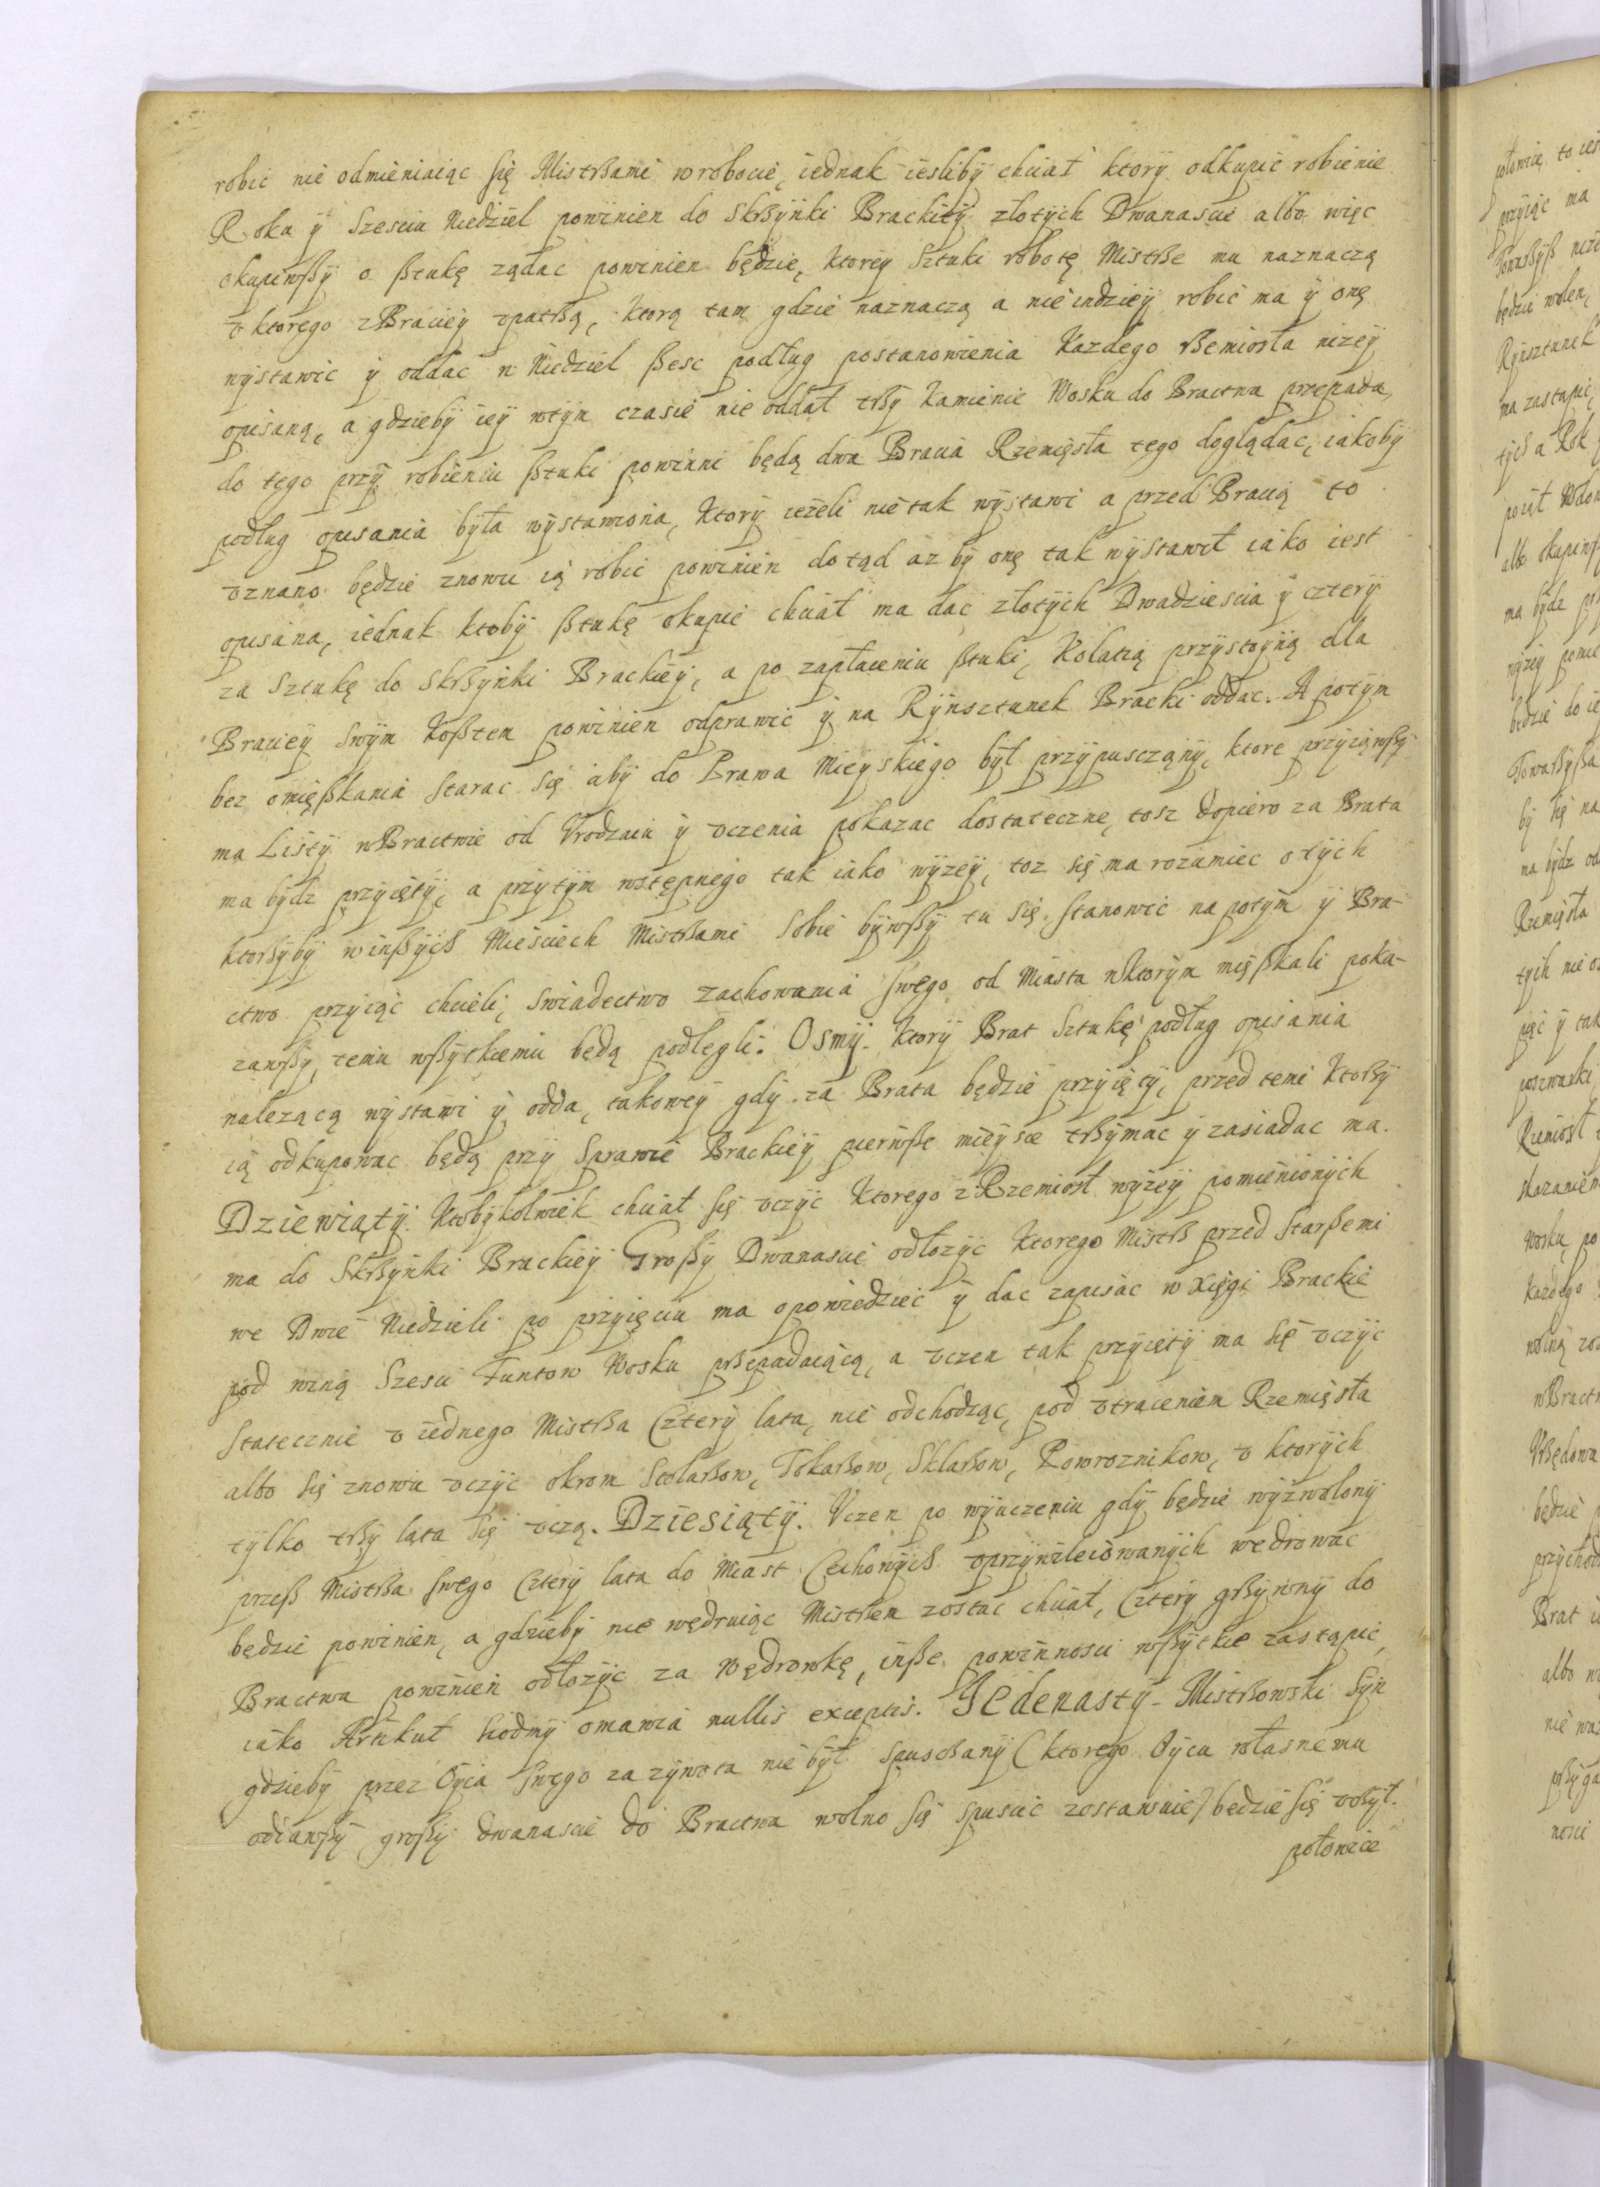 robić nie odmieniaiąc się Mistrßami w robocie, iednak iesliby chciał ktory odkupić robienie
Roka y Szesciu Niedziel powinien do Skrßynki Brackiey złotych Dwanascie albo więc
okupiwßy o ßtukę ządac powinien będzie, ktorey Sztuki robotę Mistrße mu naznaczą
v ktorego z Braciey vpatrßą, ktorą tam gdzie naznaczą a nie indziey robić ma y onę
wystawic y oddac w Niedziel ßesc podług postanowienia Kazdego rßemiosła nizey
opisaną, a gdzieby iey wtym czasie nie oddał trßy Kamienie Wosku do Bractwa przepada,
do tego przy robieniu ßtuki powinni będą dwa Bracia Rzemięsła tego doglądac, iakoby
podług opisania była wystawiona, Ktory iezeli nie tak wystawi a przed Bracią to
vznano będzie znowu ią robic powinien do tąd az by onę tak wystawił iako iest
opisana, iednak ktoby ßtukę okupic chciał ma dac złotych Dwadziescia y cztery
za Sztukę do Skrßynki Brackiey, a po zapłaceniu ßtuki, Kolatią przystoyną dla
Braciey swym Koßtem powinien odprawic y na Rynsztunek Bracki oddac. A potym
bez omięßkania starac się aby do Prawa Mieyskiego był przypusczany, ktore przyiąwßy
ma Listy w Bractwie od Vrodzaiu y vczenia pokazac dostateczne, tosz dopiero za Brata
ma bydz przyięty, a przytym wstępnego tak iako wyzey, toz się ma rozumiec o tych
ktorßyby w inßych Mieściech Mistrßami sobie bywßy tu się stanowic napotym y Bra-
ctwo przyiąc chcieli, swiadectwo zachowania swego od Miasta wktorym mięßkali poka-
zawßy, temu wßytkiemu będą podlegli. Osmy. Ktory Brat Sztukę podług opisania
nalezącą wystawi y odda, takowey gdy za Brata będzie przyięty, przed temi Ktorßy
ią odkupowac będą przy Sprawie Brackiey pierwße mieysce trßymac y zasiadac ma.
Dziewiąty. Ktobykolwiek chciał się vczyc Ktorego z Rzemiosł wyzey pomienionych
ma do Skrßynki Brackiey Großy Dwanascie odłozyc Ktorego Mistrß przed starßemi
we Dwie Niedzieli po przyięciu ma opowiedziec y dac zapisac w Xięgi Brackie
pod winą Szesci Funtow Wosku prßepadaiącą, a vczen tak przyięty ma się vczyc
statecznie v iednego Mistrßa Cztery lata, nie odchodząc, pod vtraceniem Rzemięsła
albo się znowu vczyc okrom Stolarßow, Tokarßow, Sklarßow, Powroznikow, v ktorych
tylko trßy lata się vczą. Dziesiąty. Vczen po wyuczeniu gdy będzie wyzwolony
przeß Mistrßa swego Cztery lata do Miast Cechowych vprzywileiowanych wędrowac
będzie powinien, a gdzieby nie wędruiąc Mistrßem zostac chciał, Cztery grßywny do
Bractwa powinien odłozyc za Wędrowkę, inße powinnosci wßytkie zastąpic,
iako Artikuł Siodmy omawia nullis exceptis. Jedenasty. Mistrßowski Syn
gdzieby przez Oyca swego za zywota nie był spusczany (ktorego Oycu własnemu
oddawßy großy dwanascie do Bractwa wolno się spuscic zostawuie) będzie się vczył.
połowice